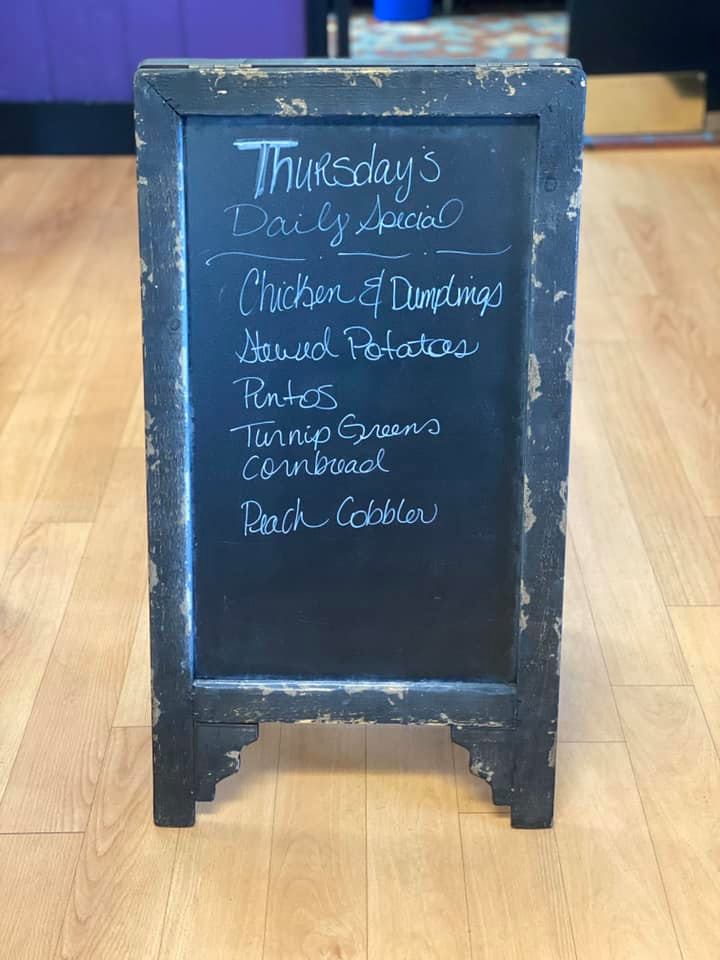 Thursday's
Daily Special
Chicken & Dumplings
Stewed Potatoes
Pintos
Turnip Greens
Cornbread
Peach Cobbler